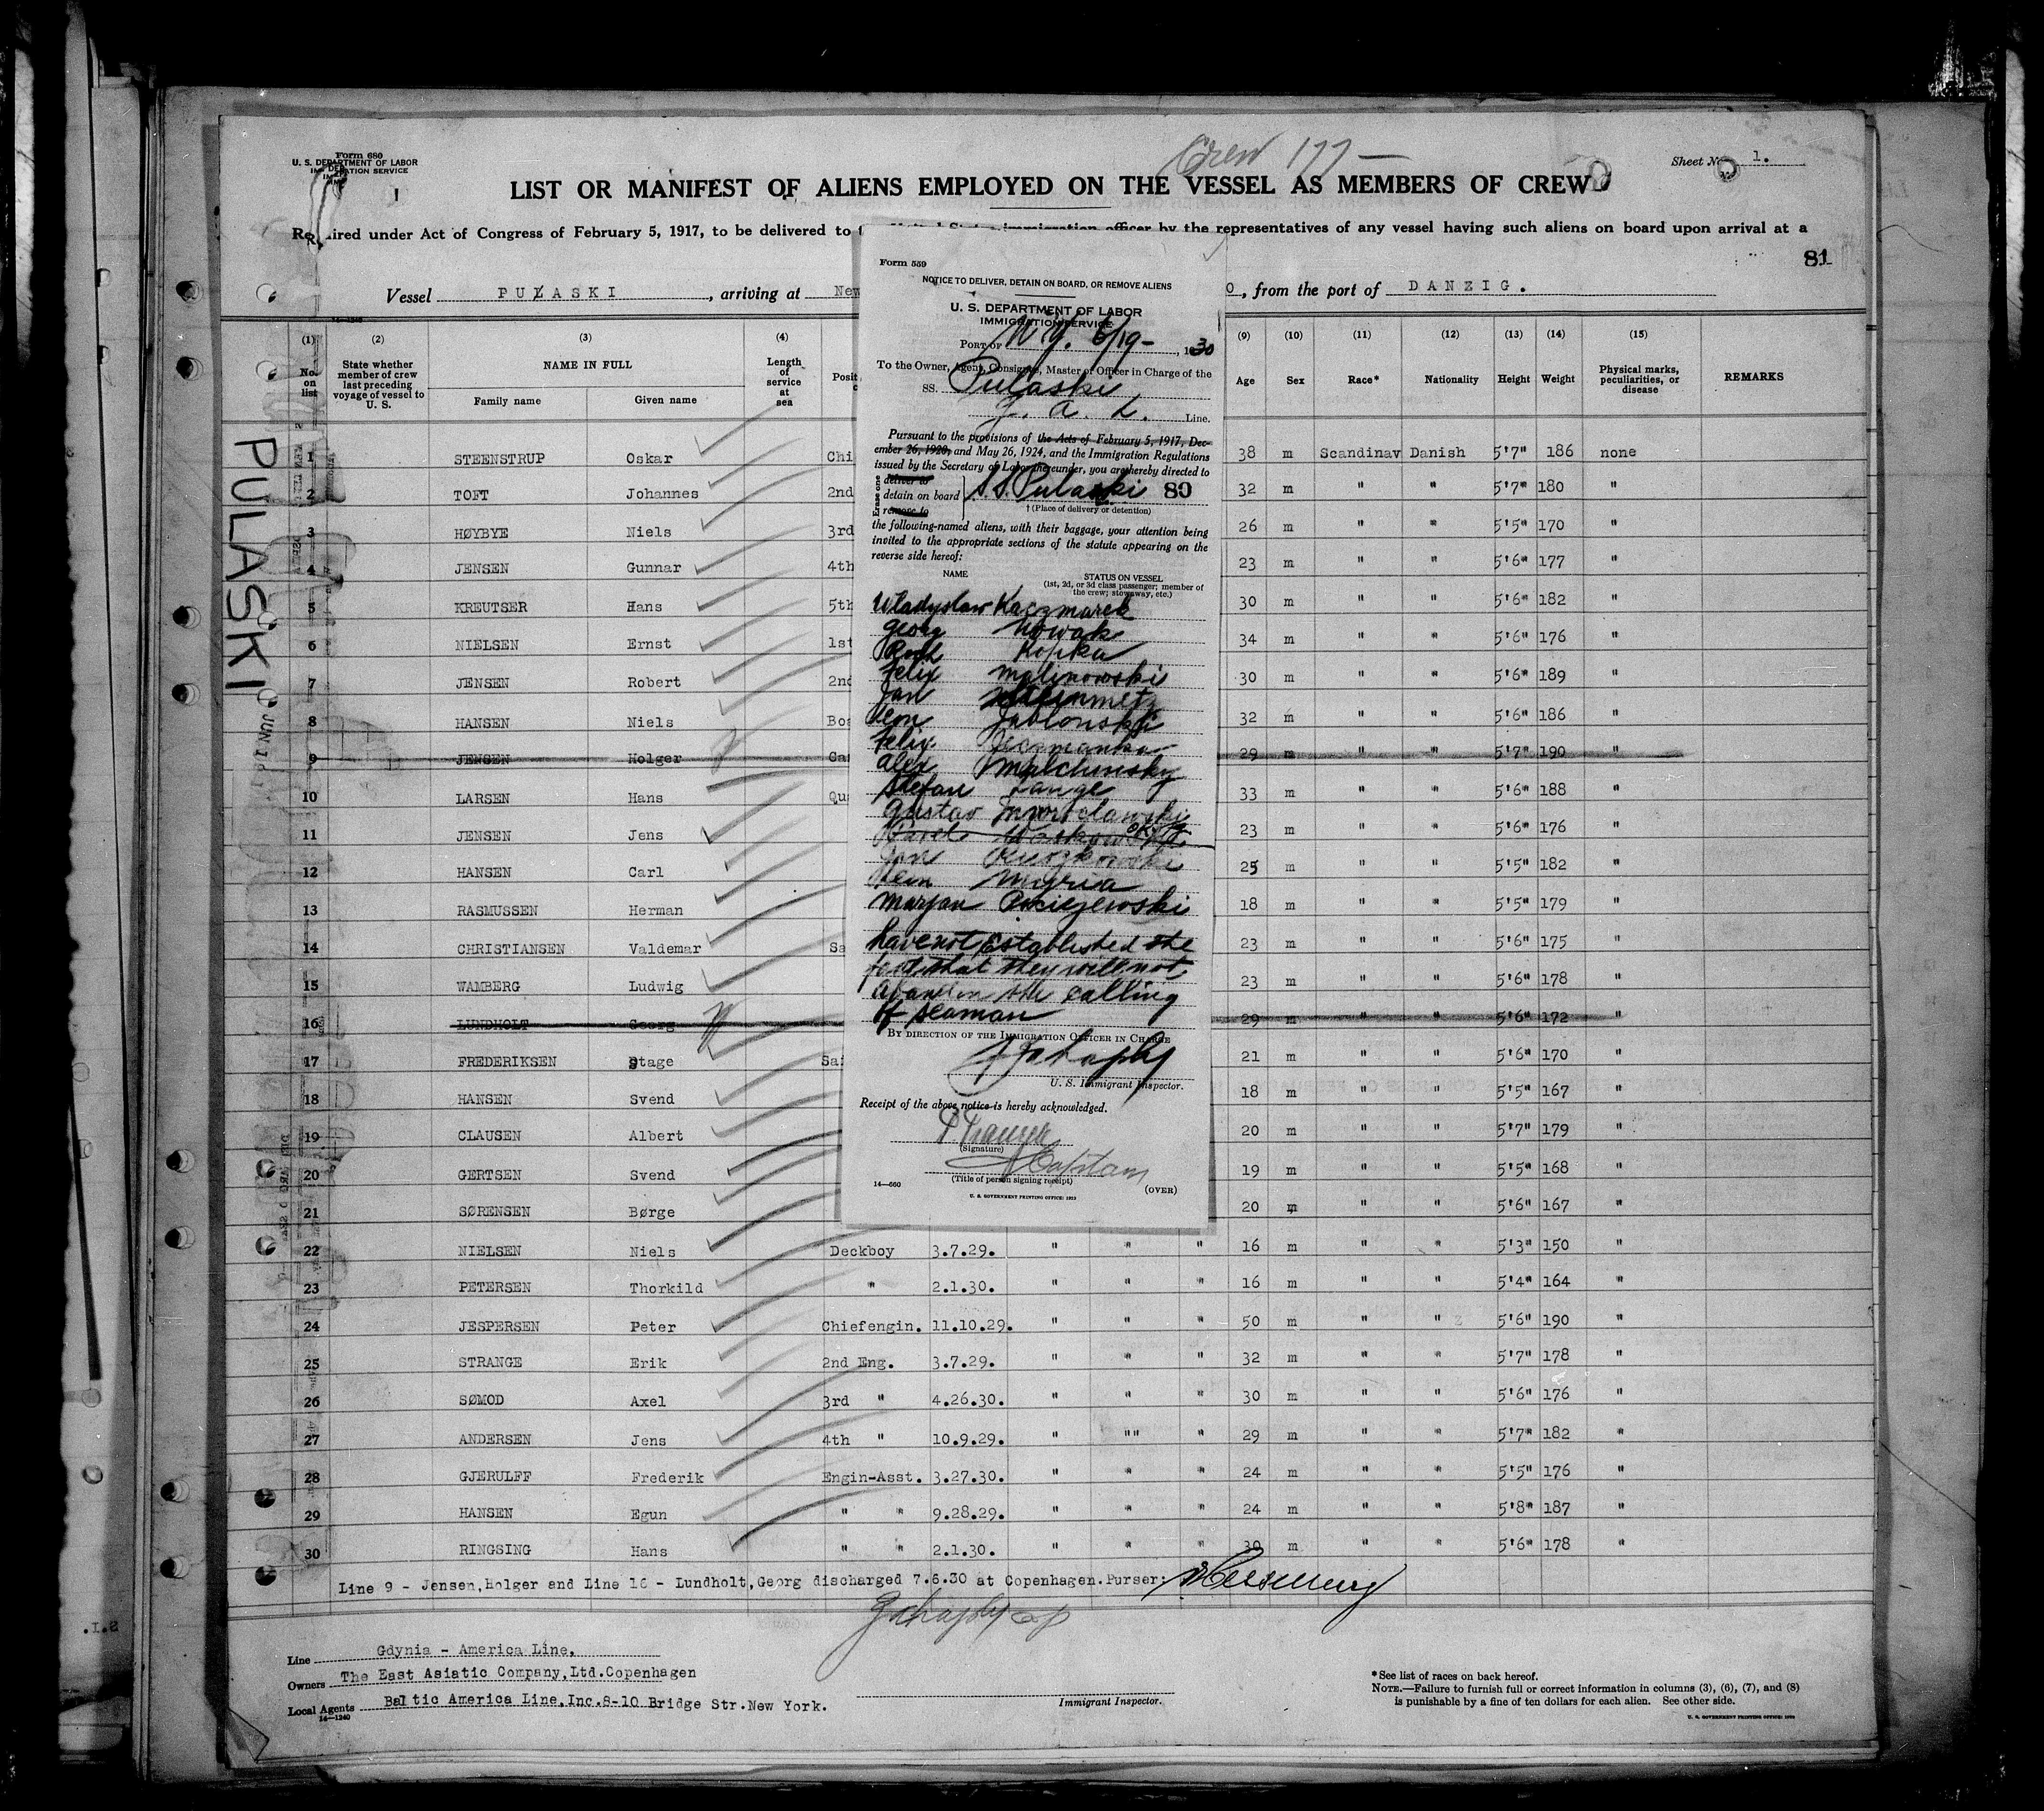 Crew 177 —
Form 680
U. S. DEPARTMENT OF LABOR
Sheet No. 1.
1
LIST OR MANIFEST OF ALIENS EMPLOYED ON THE VESSEL AS MEMBERS OF CREW
under Act of Congress of February 5, 1917, to be delivered to immigration officer by the representatives of any vessel having such aliens on board upon arrival at a
81
Vessel PULASKI, arriving at New 0, from the port of DANZIG.
(1) (2) (3) (4) (9) (10) (11) (12) (13) (14) (15)
No. on list State whether member of crew last preceding voyage of vessel to U. S. NAME IN FULL Family name Given name Length of service at sea Posit Age Sex Race* Nationality Height Weight Physical marks, peculiarities, or disease REMARKS
PULASKI
1 STEENSTRUP Oskar Chi 38 m Scandinav Danish 5'7" 186 none
2 TOFT Johannes 2nd 32 m " " 5'7" 180 "
3 HØYBYE Niels 3rd 26 m " " 5'5" 170 "
4 JENSEN Gunnar 4th 23 m " " 5'6" 177 "
5 KREUTSER Hans 5th 30 m " " 5'6" 182 "
6 NIELSEN Ernst 1st 34 m " " 5'6" 176 "
7 JENSEN Robert 2nd 30 m " " 5'6" 189 "
8 HANSEN Niels Bos 32 m " " 5'6" 186 "
9 JENSEN Holger Ca 29 m " " 5'7" 190 "
10 LARSEN Hans Qu 33 m " " 5'6" 188 "
11 JENSEN Jens 23 m " " 5'6" 176 "
12 HANSEN Carl 25 m " " 5'5" 182 "
13 RASMUSSEN Herman 18 m " " 5'5" 179 "
14 CHRISTIANSEN Valdemar Sa 23 m " " 5'6" 175 "
15 WAMBERG Ludwig 23 m " " 5'6" 178 "
16 LUNDHOLT Georg 29 m " " 5'6" 172 "
17 FREDERIKSEN Stage Sai 21 m " " 5'6" 170 "
18 HANSEN Svend 18 m " " 5'5" 167 "
19 CLAUSEN Albert 20 m " " 5'7" 179 "
20 GERTSEN Svend 19 m " " 5'5" 168 "
21 SØRENSEN Børge 20 m " " 5'6" 167 "
22 NIELSEN Niels Deckboy 3.7.29. " " " 16 m " " 5'3" 150 "
23 PETERSEN Thorkild " 2.1.30. " " " 16 m " " 5'4" 164 "
24 JESPERSEN Peter Chiefengin. 11.10.29. " " " 50 m " " 5'6" 190 "
25 STRANGE Erik 2nd Eng. 3.7.29. " " " 32 m " " 5'7" 178 "
26 SØMOD Axel 3rd " 4.26.30. " " " 30 m " " 5'6" 176 "
27 ANDERSEN Jens 4th " 10.9.29. " "" " 29 m " " 5'7" 182 "
28 GJERULFF Frederik Engin-Asst. 3.27.30. " " " 24 m " " 5'5" 176 "
29 HANSEN Egun " " 9.28.29. " " " 24 m " " 5'8" 187 "
30 RINGSING Hans " " 2.1.30. " " " 30 m " " 5'6" 178 "
Line 9 - Jensen,Holger and Line 16 - Lundholt,Georg discharged 7.6.30 at Copenhagen.Purser:
Form 559
NOTICE TO DELIVER, DETAIN ON BOARD, OR REMOVE ALIENS
U. S. DEPARTMENT OF LABOR
IMMIGRATION SERVICE
PORT OF N.Y. 6/19 -, 1930
To the Owner, Agent, Consignee, Master or Officer in Charge of the
SS. Pulaski
G. A. L. Line.
Pursuant to the provisions of the Acts of February 5, 1917, Dec-
ember 26, 1920, and May 26, 1924, and the Immigration Regulations
issued by the Secretary of Labor thereunder, you are hereby directed to
Erase one
deliver to
detain on board S.S. Pulaski 80
remove to
† (Place of delivery or detention)
the following-named aliens, with their baggage, your attention being
invited to the appropriate sections of the statute appearing on the
reverse side hereof:
NAME STATUS ON VESSEL
(1st, 2d, or 3d class passenger; member of
the crew; stowaway, etc.)
Wladyslaw Kaczmarek
Georg Nowak
Roch Kopka
Felix Malinowski
Jan
Leon Jablonski
Felix
Alex Malchinsky
Stefan Lange
Gustav
Jan
Marjan
have not established the
fact that they will not
abandon the calling
of seaman
BY DIRECTION OF THE IMMIGRATION OFFICER IN CHARGE
U. S. Immigrant Inspector.
Receipt of the above notice is hereby acknowledged.
(Signature)
Captain
(Title of person signing receipt)
14—660 (OVER)
U. S. GOVERNMENT PRINTING OFFICE: 1929
Line Gdynia - America Line,
Owners The East Asiatic Company,Ltd.Copenhagen
Local Agents Baltic America Line,Inc.8-10 Bridge Str.New York.
14—1240
Immigrant Inspector.
*See list of races on back hereof.
NOTE.—Failure to furnish full or correct information in columns (3), (6), (7), and (8)
is punishable by a fine of ten dollars for each alien. See other side.